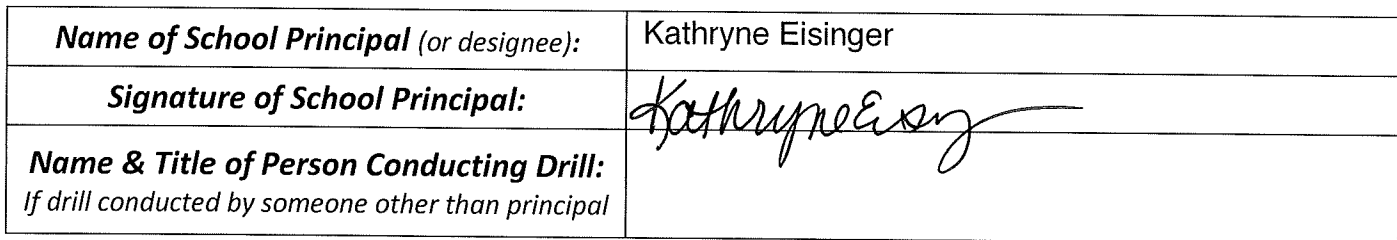 Name of School Principal (or designee): Kathryne Eisinger
Signature of School Principal: Kathryne
Name & Title of Person Conducting Drill:
If drill conducted by someone other than principal